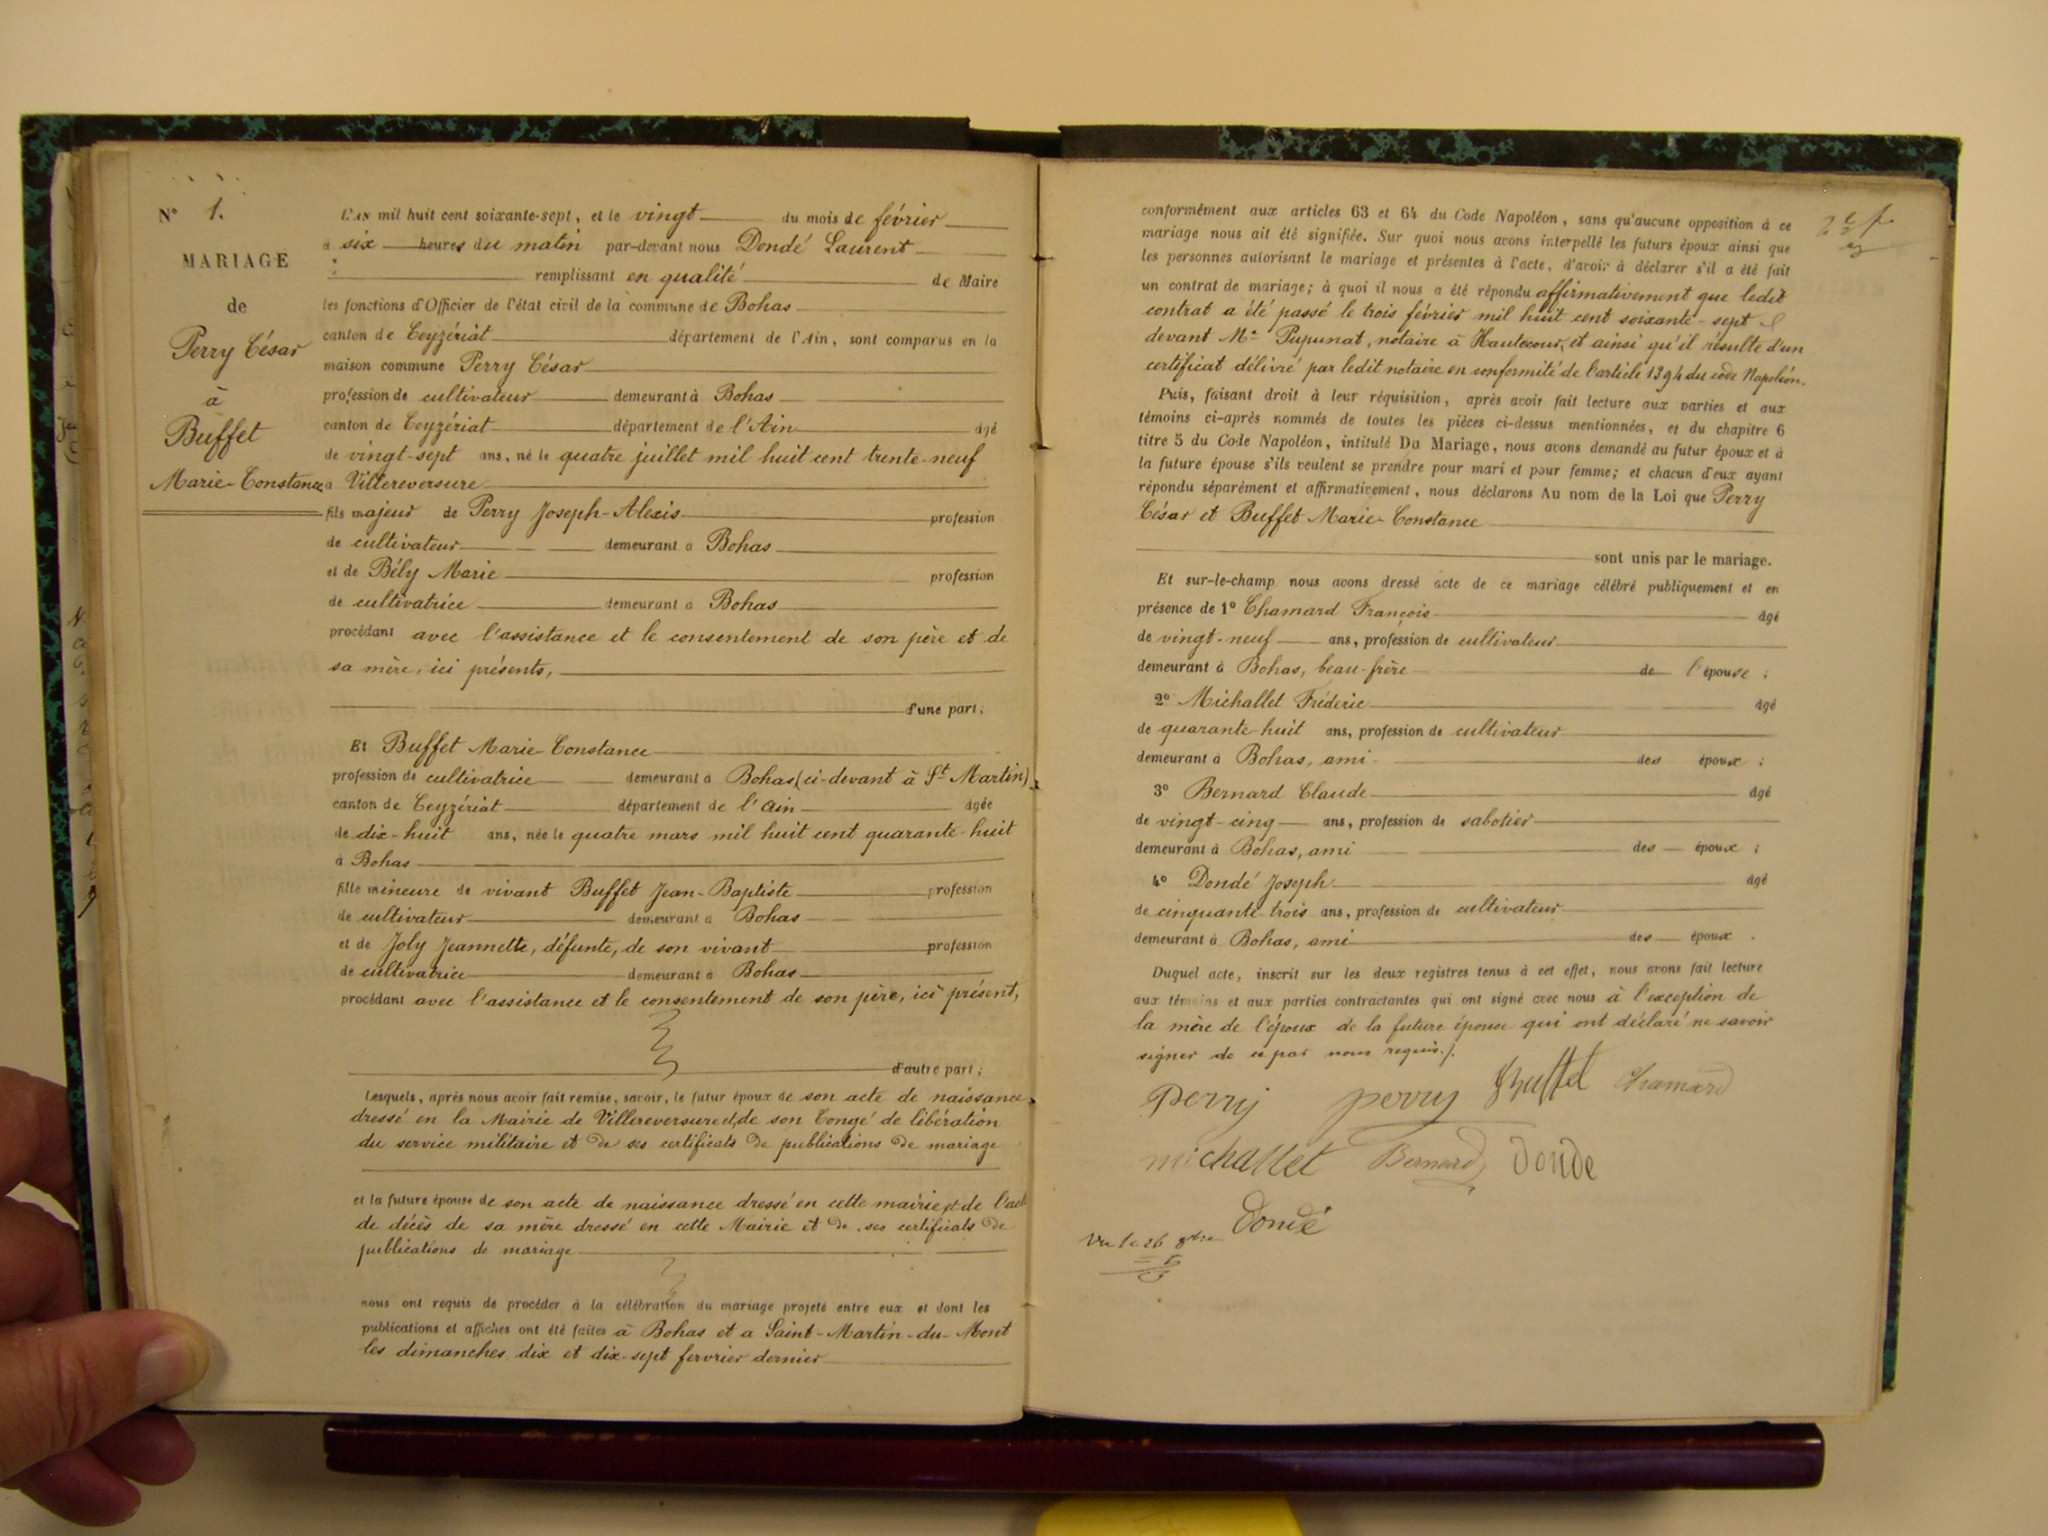 N° 1.
MARIAGE
de
Perry César
à
Buffet
Marie-Constance
L'AN mil huit cent soixante-sept, et le vingt du mois de février
à six heures du matin par-devant nous Dondé Laurent
remplissant en qualité de Maire
les fonctions d'Officier de l'état civil de la commune de Bohas
canton de Ceyzériat département de l'Ain, sont comparus en la
maison commune Perry César
profession de cultivateur demeurant à Bohas
canton de Ceyzériat département de l'Ain âgé
de vingt-sept ans, né le quatre juillet mil huit cent trente-neuf
à Villereversure
fils majeur de Perry Joseph-Alexis profession
de cultivateur demeurant à Bohas
et de Bély Marie profession
de cultivatrice demeurant à Bohas
procédant avec l'assistance et le consentement de son père et de
sa mère, ici présents,
d'une part;
Et Buffet Marie-Constance
profession de cultivatrice demeurant à Bohas (ci-devant à St Martin)
canton de Ceyzériat département de l'Ain âgée
de dix-huit ans, née le quatre mars mil huit cent quarante-huit
à Bohas
fille mineure de vivant Buffet Jean-Baptiste profession
de cultivateur demeurant à Bohas
et de Joly Jeannette, défunte, de son vivant profession
de cultivatrice demeurant à Bohas
procédant avec l'assistance et le consentement de son père, ici présent,
d'autre part;
Lesquels, après nous avoir fait remise, savoir, le futur époux de son acte de naissance
dressé en la Mairie de Villereversure et de son Congé de libération
du service militaire et de ses certificats de publications de mariage
et la future épouse de son acte de naissance dressé en cette mairie et de l'acte
de décès de sa mère dressé en cette Mairie et de ses certificats de
publications de mariage
nous ont requis de procéder à la célébration du mariage projeté entre eux et dont les
publications et affiches ont été faites à Bohas et a Saint-Martin-du-Mont
les dimanches dix et dix-sept fervrier dernier
conformément aux articles 63 et 64 du Code Napoléon, sans qu'aucune opposition à ce
mariage nous ait été signifiée. Sur quoi nous avons interpellé les futurs époux ainsi que
les personnes autorisant le mariage et présentes à l'acte, d'avoir à déclarer s'il a été fait
un contrat de mariage; à quoi il nous a été répondu affirmativement que ledit
contrat a été passé le trois février mil huit cent soixante-sept
devant Me Pupunat, notaire à Hautecour, et ainsi qu'il résulte d'un
certificat délivré par ledit notaire en conformité de l'article 1394 du code Napoléon.
Puis, faisant droit à leur réquisition, après avoir fait lecture aux parties et aux
témoins ci-après nommés de toutes les pièces ci-dessus mentionnées, et du chapitre 6
titre 5 du Code Napoléon, intitulé Du Mariage, nous avons demandé au futur époux et à
la future épouse s'ils veulent se prendre pour mari et pour femme; et chacun d'eux ayant
répondu séparément et affirmativement, nous déclarons Au nom de la Loi que Perry
César et Buffet Marie-Constance
sont unis par le mariage.
Et sur-le-champ nous avons dressé acte de ce mariage célébré publiquement et en
présence de 1° Chamard François âgé
de vingt-neuf ans, profession de cultivateur
demeurant à Bohas, beau-frère de l'épouse;
2° Michallet Fréderic âgé
de quarante-huit ans, profession de cultivateur
demeurant à Bohas, ami des époux;
3° Bernard Claude âgé
de vingt-cinq ans, profession de sabotier
demeurant à Bohas, ami des époux;
4° Dondé Joseph âgé
de cinquante-trois ans, profession de cultivateur
demeurant à Bohas, ami des époux.
Duquel acte, inscrit sur les deux registres tenus à cet effet, nous avons fait lecture
aux témoins et aux parties contractantes qui ont signé avec nous à l'exception de
la mère de l'époux de la future épouse qui ont déclaré ne savoir
signer de ce par nous requis./.
Perry perry Buffet Chamard
michallet Bernard donde
Dondé
Vu le 26 8bre